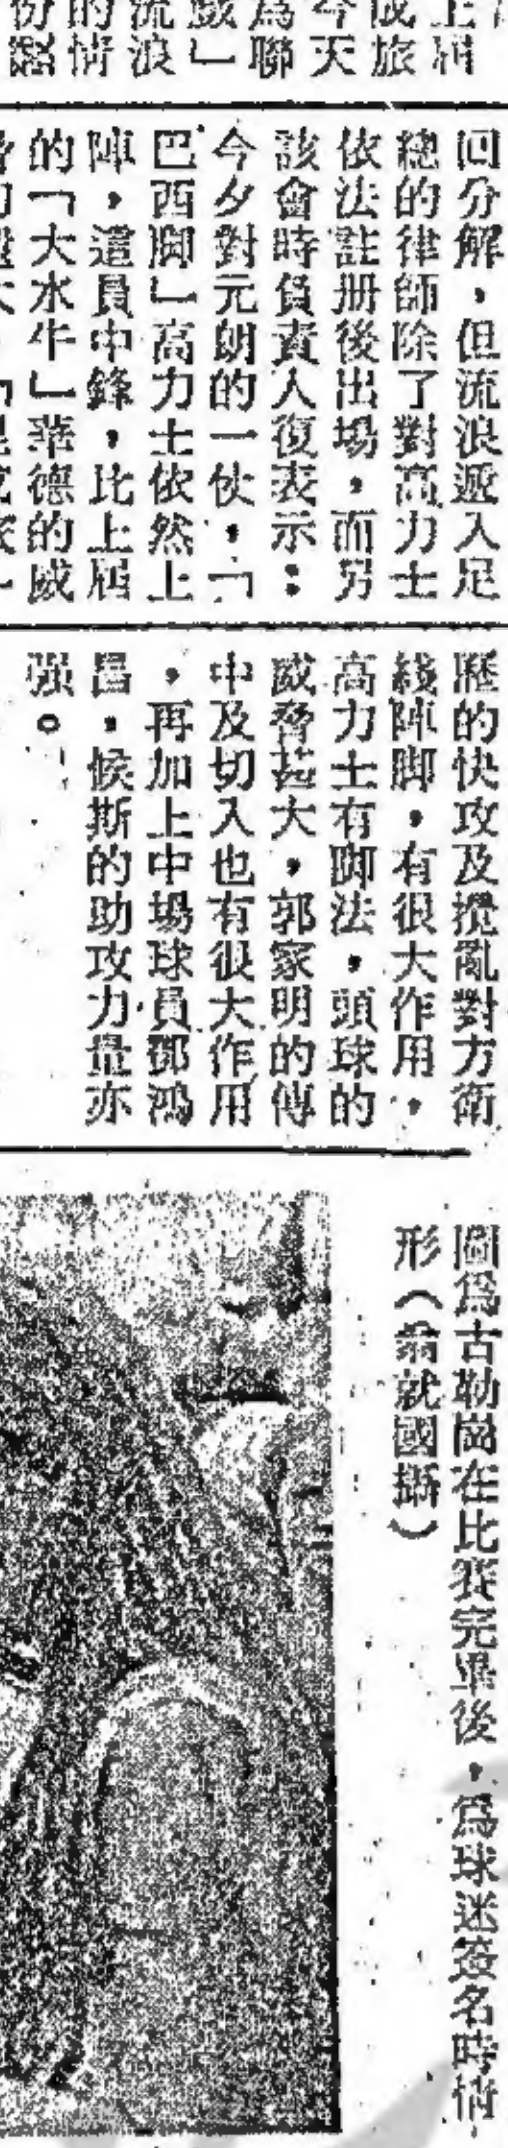 上屆
成旅
今天
爲聯
戲」
流浪
的情
份
回分解，但流浪遞入足
總的律師除了對高力士
依法註册後出場，而另
該會時負責人復表示：
今夕對元朗的一仗，「
巴西脚」高力士依然上
陣，這員中鋒，比上屆
的「大水牛」華德的威
歷的快攻及攪亂對方衛
綫陣脚，有很大作用，
高力士有脚法，頭球的
威脅甚大，郭家明的傳
中及切入也有很大作用
，再加上中場球員鄧鴻
昌，候斯的助攻力量亦
强。
圖爲古勒崗在比賽完畢後，爲球迷簽名時情
形（翁就國攝）